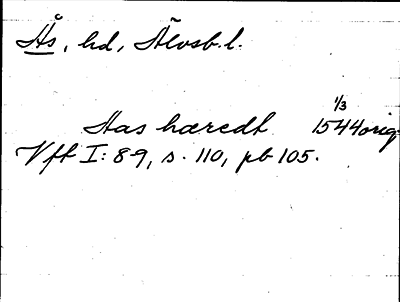 Ås, hd, Älvsb. l.
1/3
Aas hæredt 1544 orig.
Vft I: 89, s. 110, pb 105.